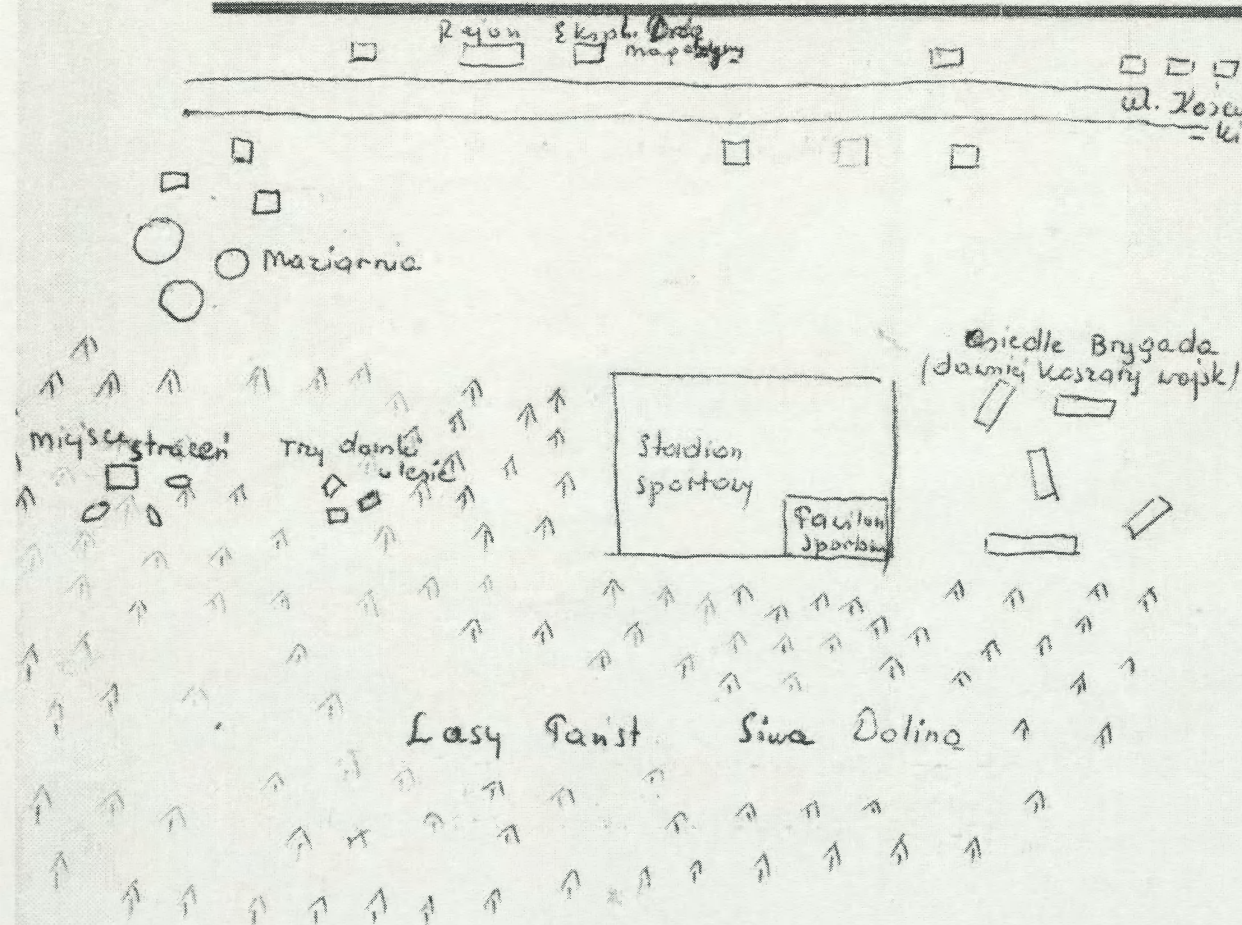 Rejon Ekspl. Dróg
ul. Kościu
= ki
Maziarnia
Osiedle Brygada
(dawniej Koszary wojsk)
Miejsce straceń
Trzy domki
w lesie
Stadion
sportowy
Pawilon
Sportowy
Lasy Państ Siwa Dolina